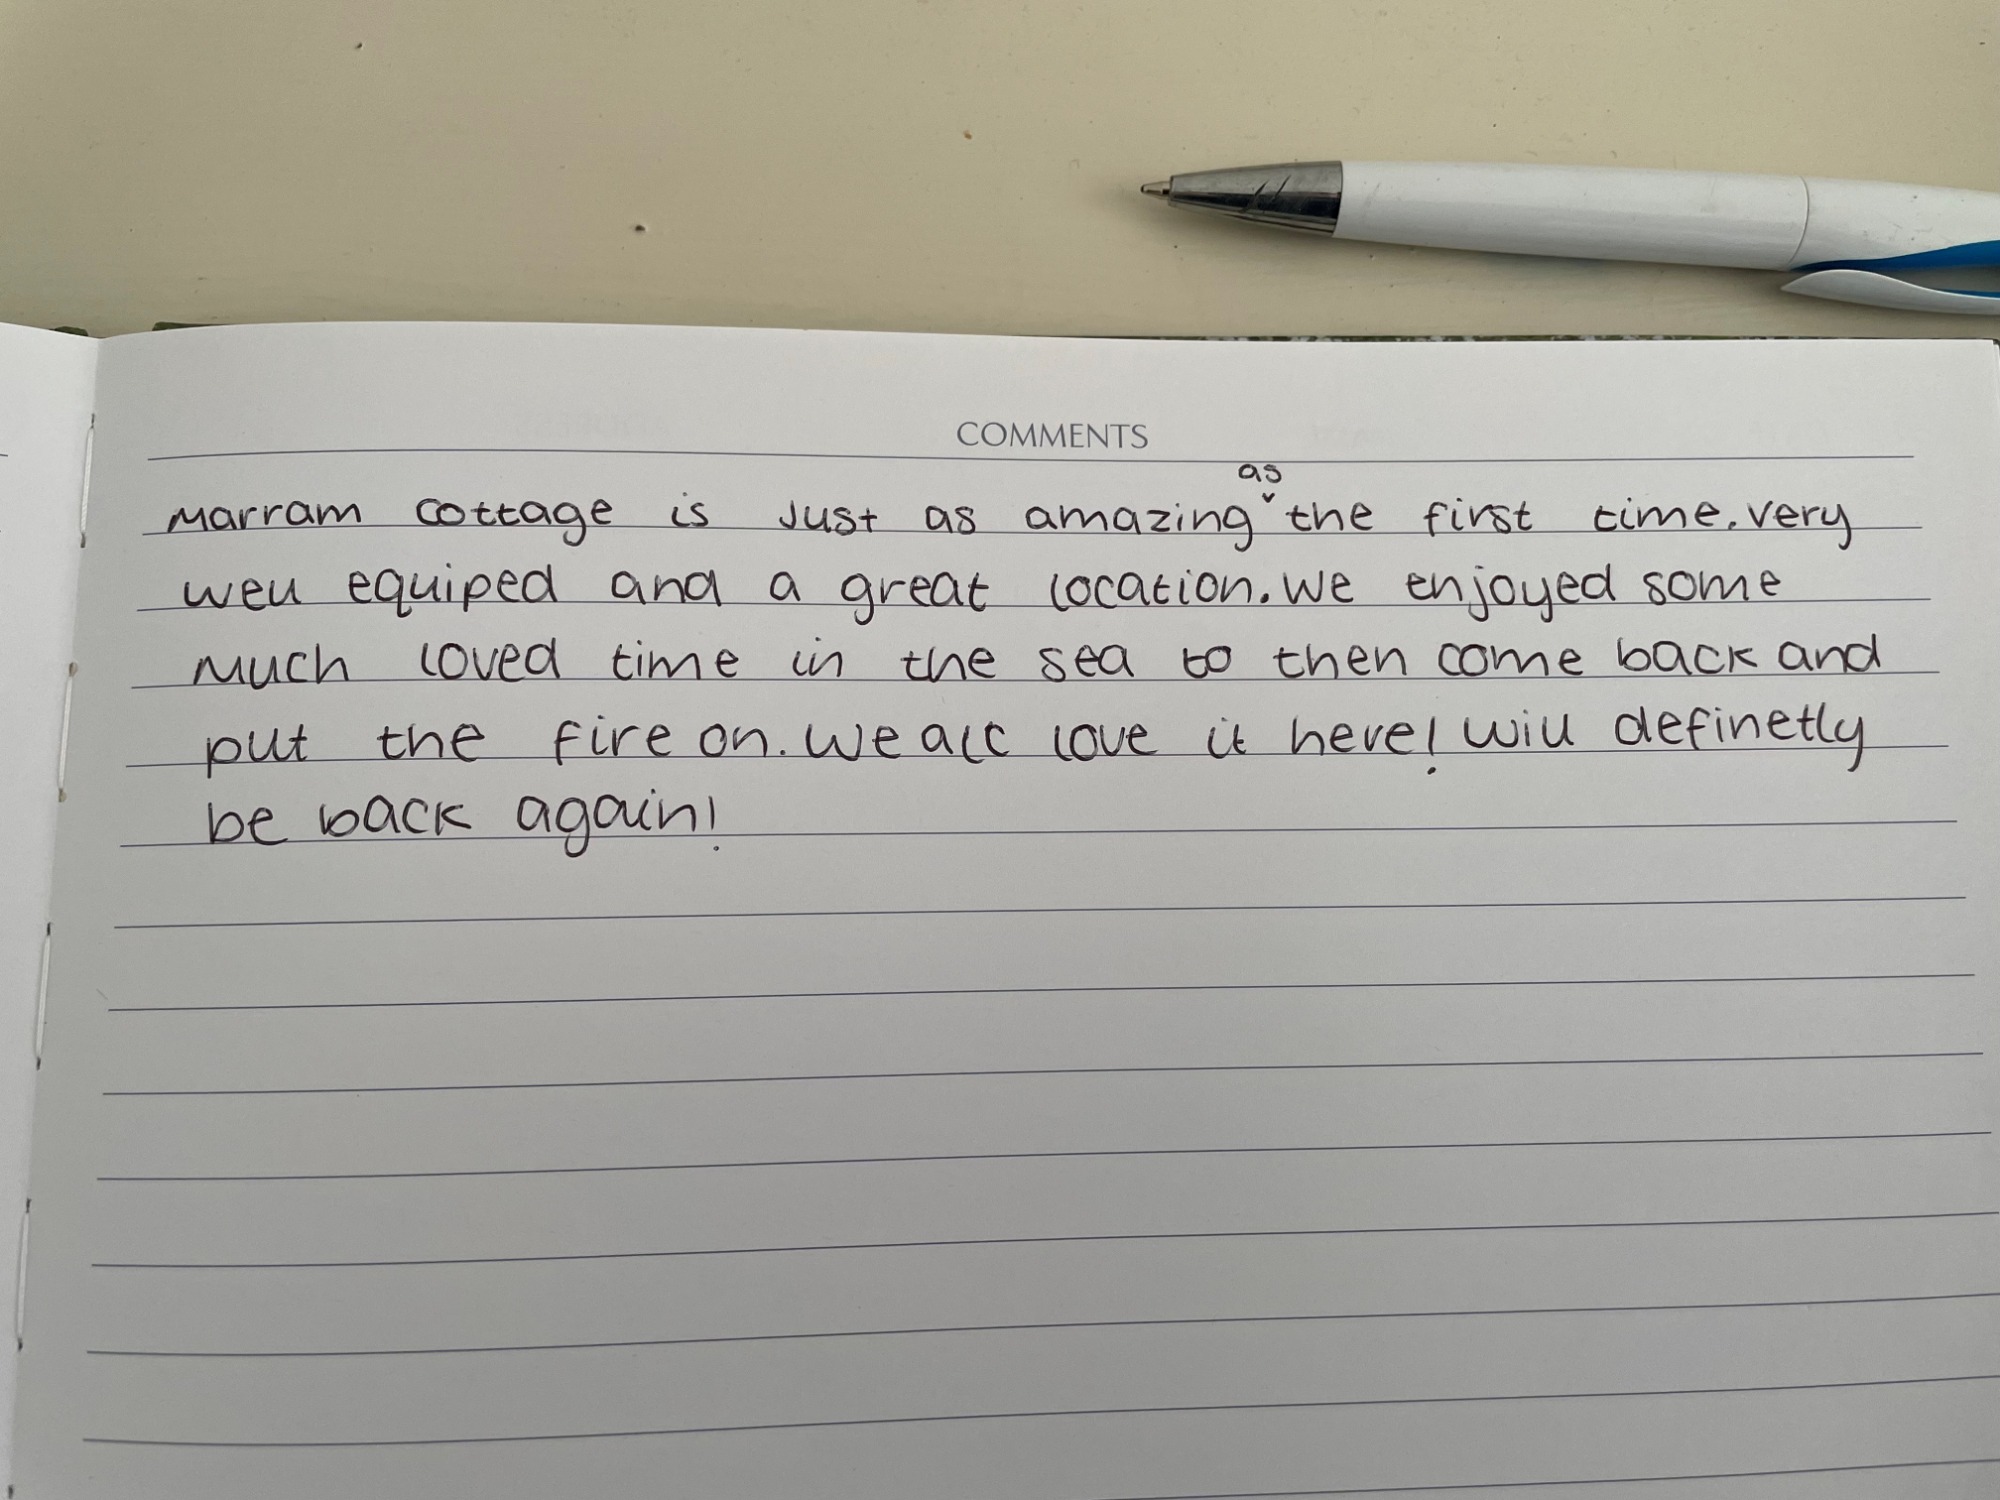 COMMENTS
Marram cottage is Just as amazing as the first time. very
well equiped and a great location. We enjoyed some
Much loved time in the sea to then come back and
put the fire on. We all love it here! Will definetly
be back again!